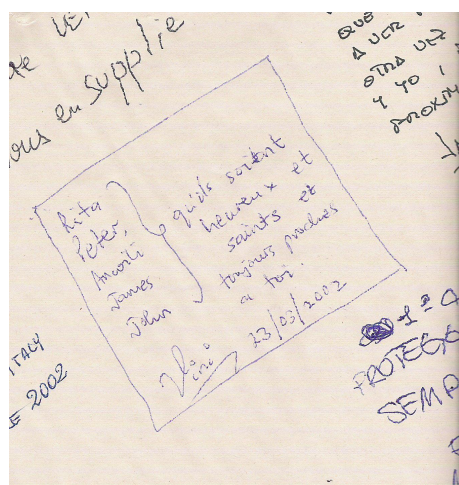 te
vous en supplie
QUE
A VER
OTRA VEZ
Y YO
Rita
Peter,
James
John
qu'ils soient
heureux et
saints et
toujours proches
a toi
23/03/2002
ITALY
2002
1ª
PROTEGO
SEMP